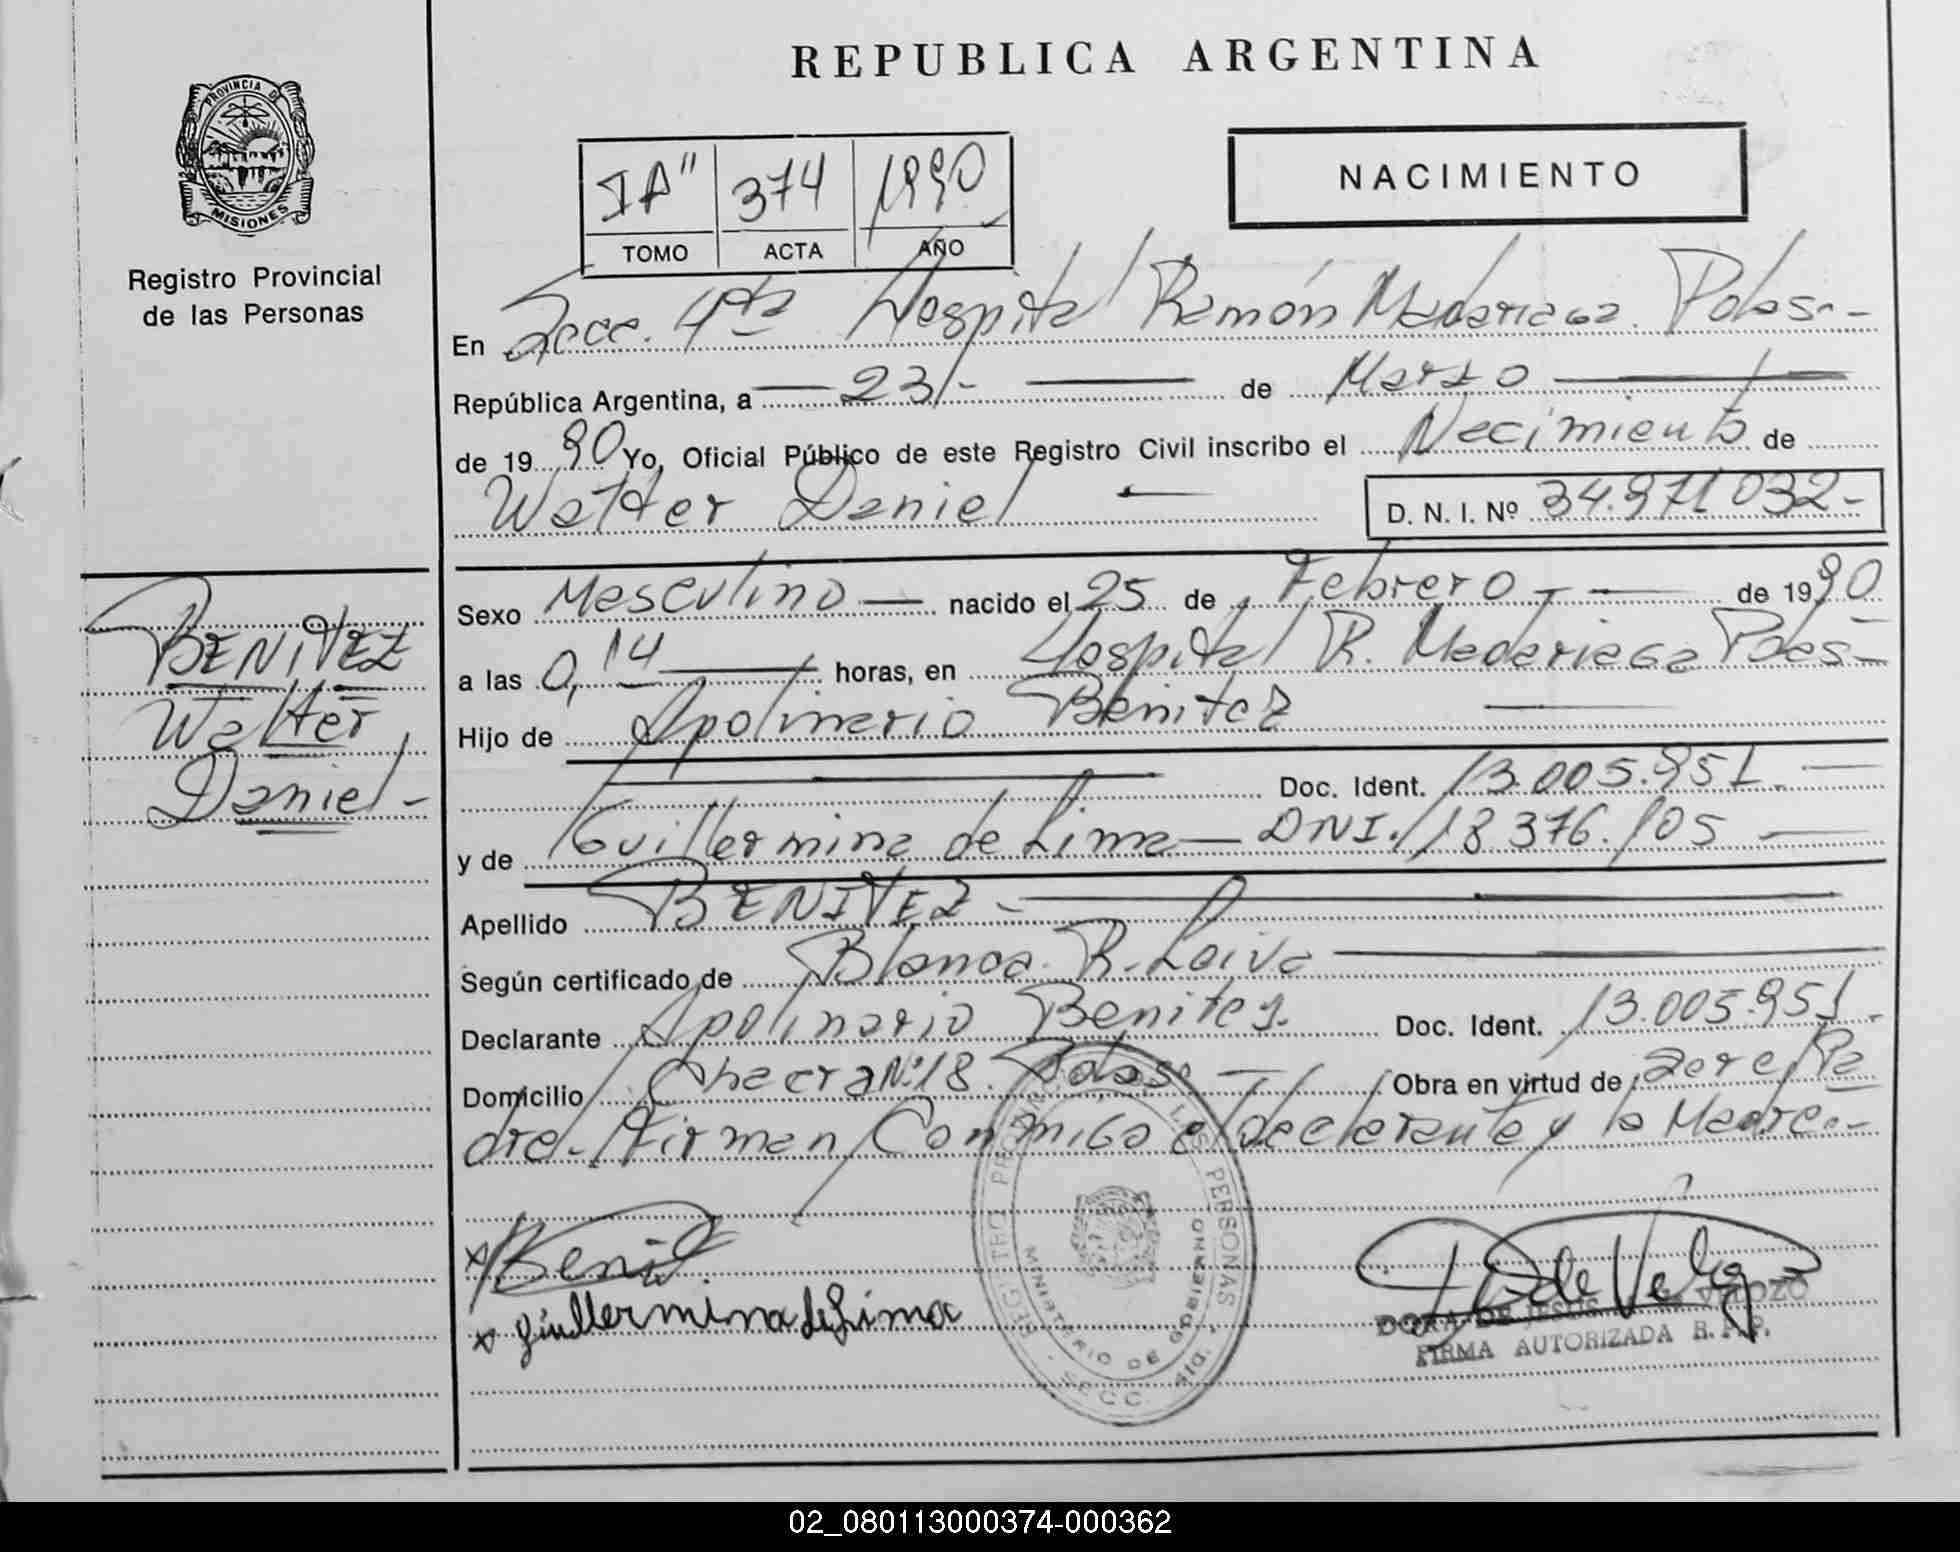 REPUBLICA ARGENTINA
PROVINCIA DE
MISIONES
Registro Provincial
de las Personas
374 1990
TOMO ACTA AÑO
NACIMIENTO
En Secc. 4ta Hospital Ramón Madariaga. Pdas.-
República Argentina, a 23/- de Marzo
de 1990 Yo, Oficial Público de este Registro Civil inscribo el Nacimiento de
Walter Daniel D. N. I. Nº 34.971032-
BENITEZ
Walter
Daniel-
Sexo Masculino nacido el 25 de Febrero de 1990
a las 0,14 horas, en Hospital R. Madariaga Pdas-
Hijo de Apolinario Benitez
Doc. Ident. 13.005.951.
y de Guillermina de Lima - DNI. 18.376.105
Apellido BENITEZ-
Según certificado de Blanca R. Leiva
Declarante Apolinario Benitez. Doc. Ident. 13.005.951.
Domicilio Chacra Nº 18. Pdas. Obra en virtud de ser el Pa
dre.- Firman Conmigo el declarante y la Madre.-
x Benit
x Guillermina de Lima
REGISTRO PROV. DE LAS PERSONAS
MINISTERIO DE GOBIERNO
SECC. 4ta.
DORA DE JESUS VELOZO
FIRMA AUTORIZADA R.P.P.
02_080113000374-000362